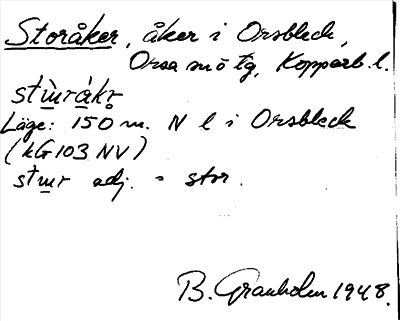 Storåker, åker i Orsbleck,
Orsa snö tg, Kopparb. l.
Läge: 150 m. N l i Orsbleck
(kG103 NV)
adj. = stor.
B. Granholm 1948.